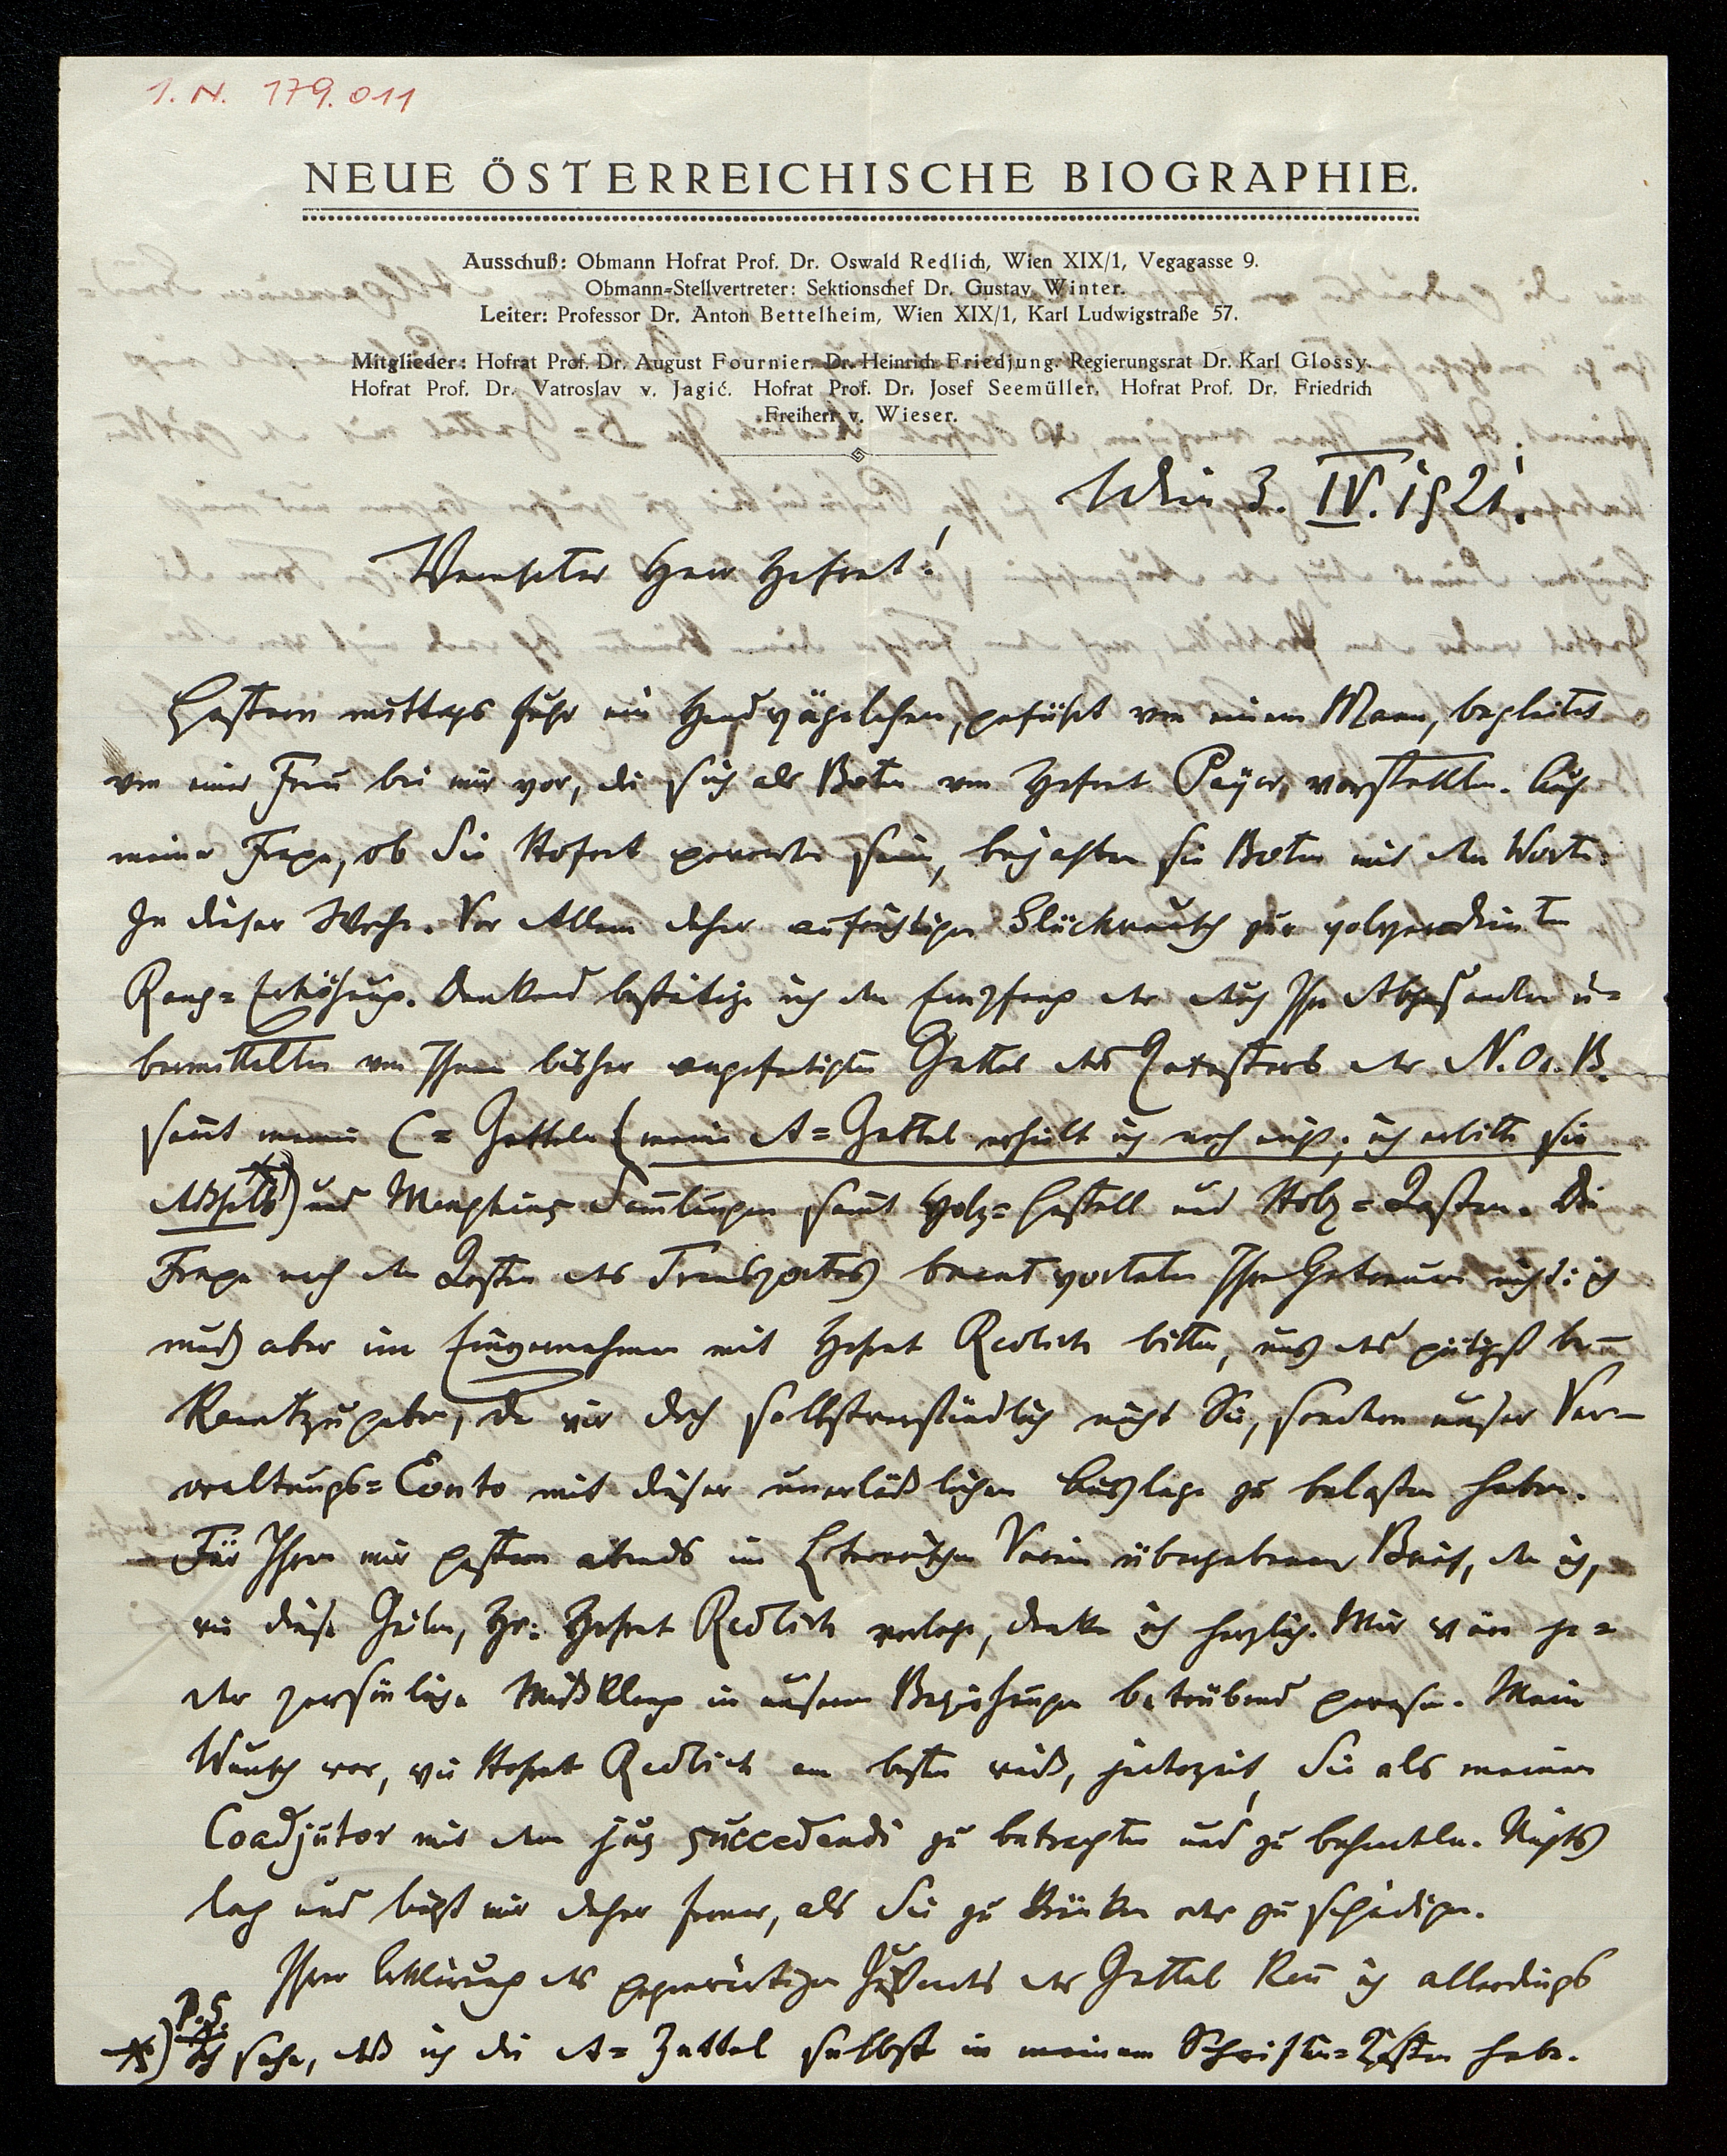 I. N. 179.011
NEUE ÖSTERREICHISCHE BIOGRAPHIE.
Ausschuß: Obmann Hofrat Prof. Dr. Oswald Redlich, Wien XIX/1, Vegagasse 9.
Obmann-Stellvertreter: Sektionschef Dr. Gustav Winter.
Leiter: Professor Dr. Anton Bettelheim, Wien XIX/1, Karl Ludwigstraße 57.
Mitglieder: Hofrat Prof. Dr. August Fournier. Dr. Heinrich Friedjung. Regierungsrat Dr. Karl Glossy.
Hofrat Prof. Dr. Vatroslav v. Jagić. Hofrat Prof. Dr. Josef Seemüller. Hofrat Prof. Dr. Friedrich
Freiherr v. Wieser.
Wien 3. IV. 1921.
Verehrter Herr Hofrat!
Gestern mittags fuhr ein Handwägelchen, geführt von einem Mann, begleitet
von einer Frau bei mir vor, die sich als Boten von Hofrat Payer vorstellten. Auf
meine Frage, ob Sie Hofrat geworden seien, bejahten die Boten mit den Worten:
In dieser Woche. Vor Allem daher aufrichtigen Glückwunsch zur wolverdienten
Rang=Erhöhung. Dankend bestätige ich den Empfang der durch Ihre Abgesandten ü=
bermittelten von Ihnen bisher angefertigten Zettel des Katasters der N. Oe. B.
samt meinen C=Zetteln (meine A=Zettel erhielt ich noch nicht; ich erbitte sie
deshalb)*) und Menghins Sammlungen samt Holz=Gestell und Holz=Kasten. Die
Frage nach den Kosten des Transportes beantworteten Ihre Getreuen nicht: ich
muß aber im Einvernehmen mit Hofrat Redlich bitten, uns das gütigst be=
kanntzugeben, da wir doch selbstverständlich nicht Sie, sondern unser Ver=
waltungs=Conto mit dieser unerläßlichen Auslage zu belasten haben.
Für Ihren mir gestern abends im Literarischen Verein übergebenen Brief, den ich,
wie diese Zeilen, Hr. Hofrat Redlich vorlege, danke ich herzlich. Mir wäre je=
der persönliche Mißklang in unseren Beziehungen betrübend gewesen. Mein
Wunsch war, wie Hofrat Redlich am besten weiß, jederzeit, Sie als meinen
Coadjutor mit dem jus succedendi zu betrachten und zu behandeln. Nichts
lag und liegt mir daher ferner, als Sie zu kränken oder zu schädigen.
Ihrer Erklärung des gegenwärtigen Zustands der Zettel kann ich allerdings
P.S.
*) Ich sehe, daß ich die A=Zettel selbst in meinem Schriften=Kasten habe.